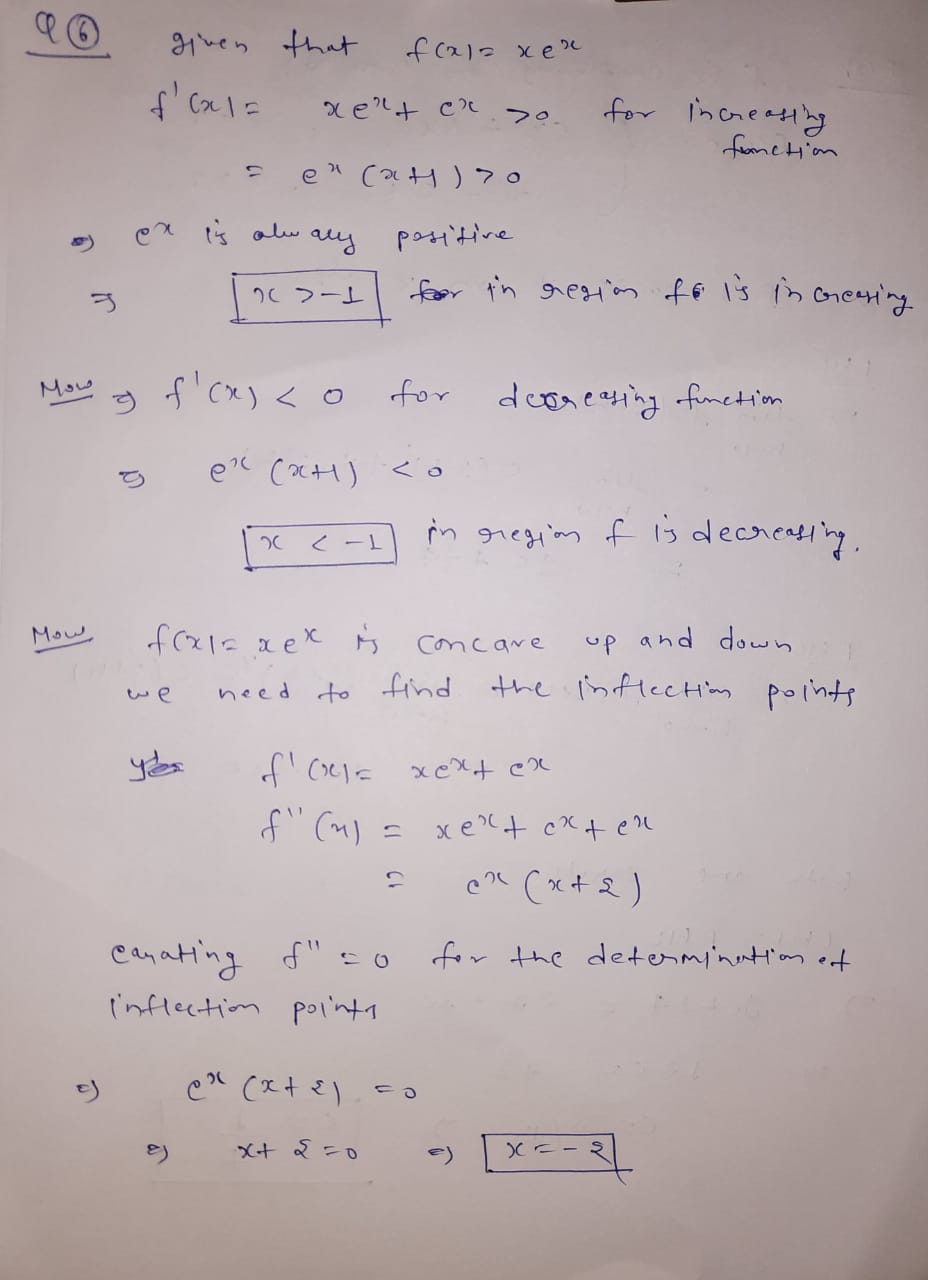 Q ⑥ given that f(x) = xeˣ
f'(x) = xeˣ + eˣ > 0 for increasing
function
= eˣ (x+1) > 0
⇒ eˣ is alwaly positive
⇒ x > -1 in region f is increasing
Now ⇒ f'(x) < 0 for decreasing function
⇒ eˣ (x+1) < 0
x < -1 in region f is decreasing.
Now f(x) = xeˣ is concave up and down
we need to find the inflection points
f'(x) = xeˣ + eˣ
f''(x) = xeˣ + eˣ + eˣ
= eˣ (x+2)
eauating f'' = 0 for the determination of
inflection points
⇒ eˣ (x+2) = 0
⇒ x+2 = 0 ⇒ x = -2